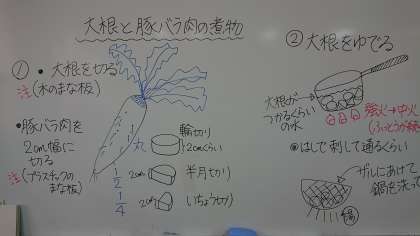 大根と豚バラ肉の煮物
① ・大根を切る
注 (木のまな板)
•豚バラ肉を
2cm幅に
切る
注 (プラスチックの
まな板)
1/丸
輪切り
2cmくらい
1/2
2cm
半月切り
1/4
2cm
いちょう切り
② 大根をゆでる
大根が
つかるくらい
の水
強火→中火
•はしで刺して通るくらい
ザルにあけて
鍋底洗っ